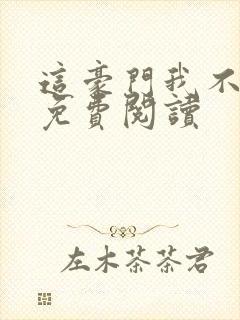 這豪門我不
免費閱讀
左木茶茶君